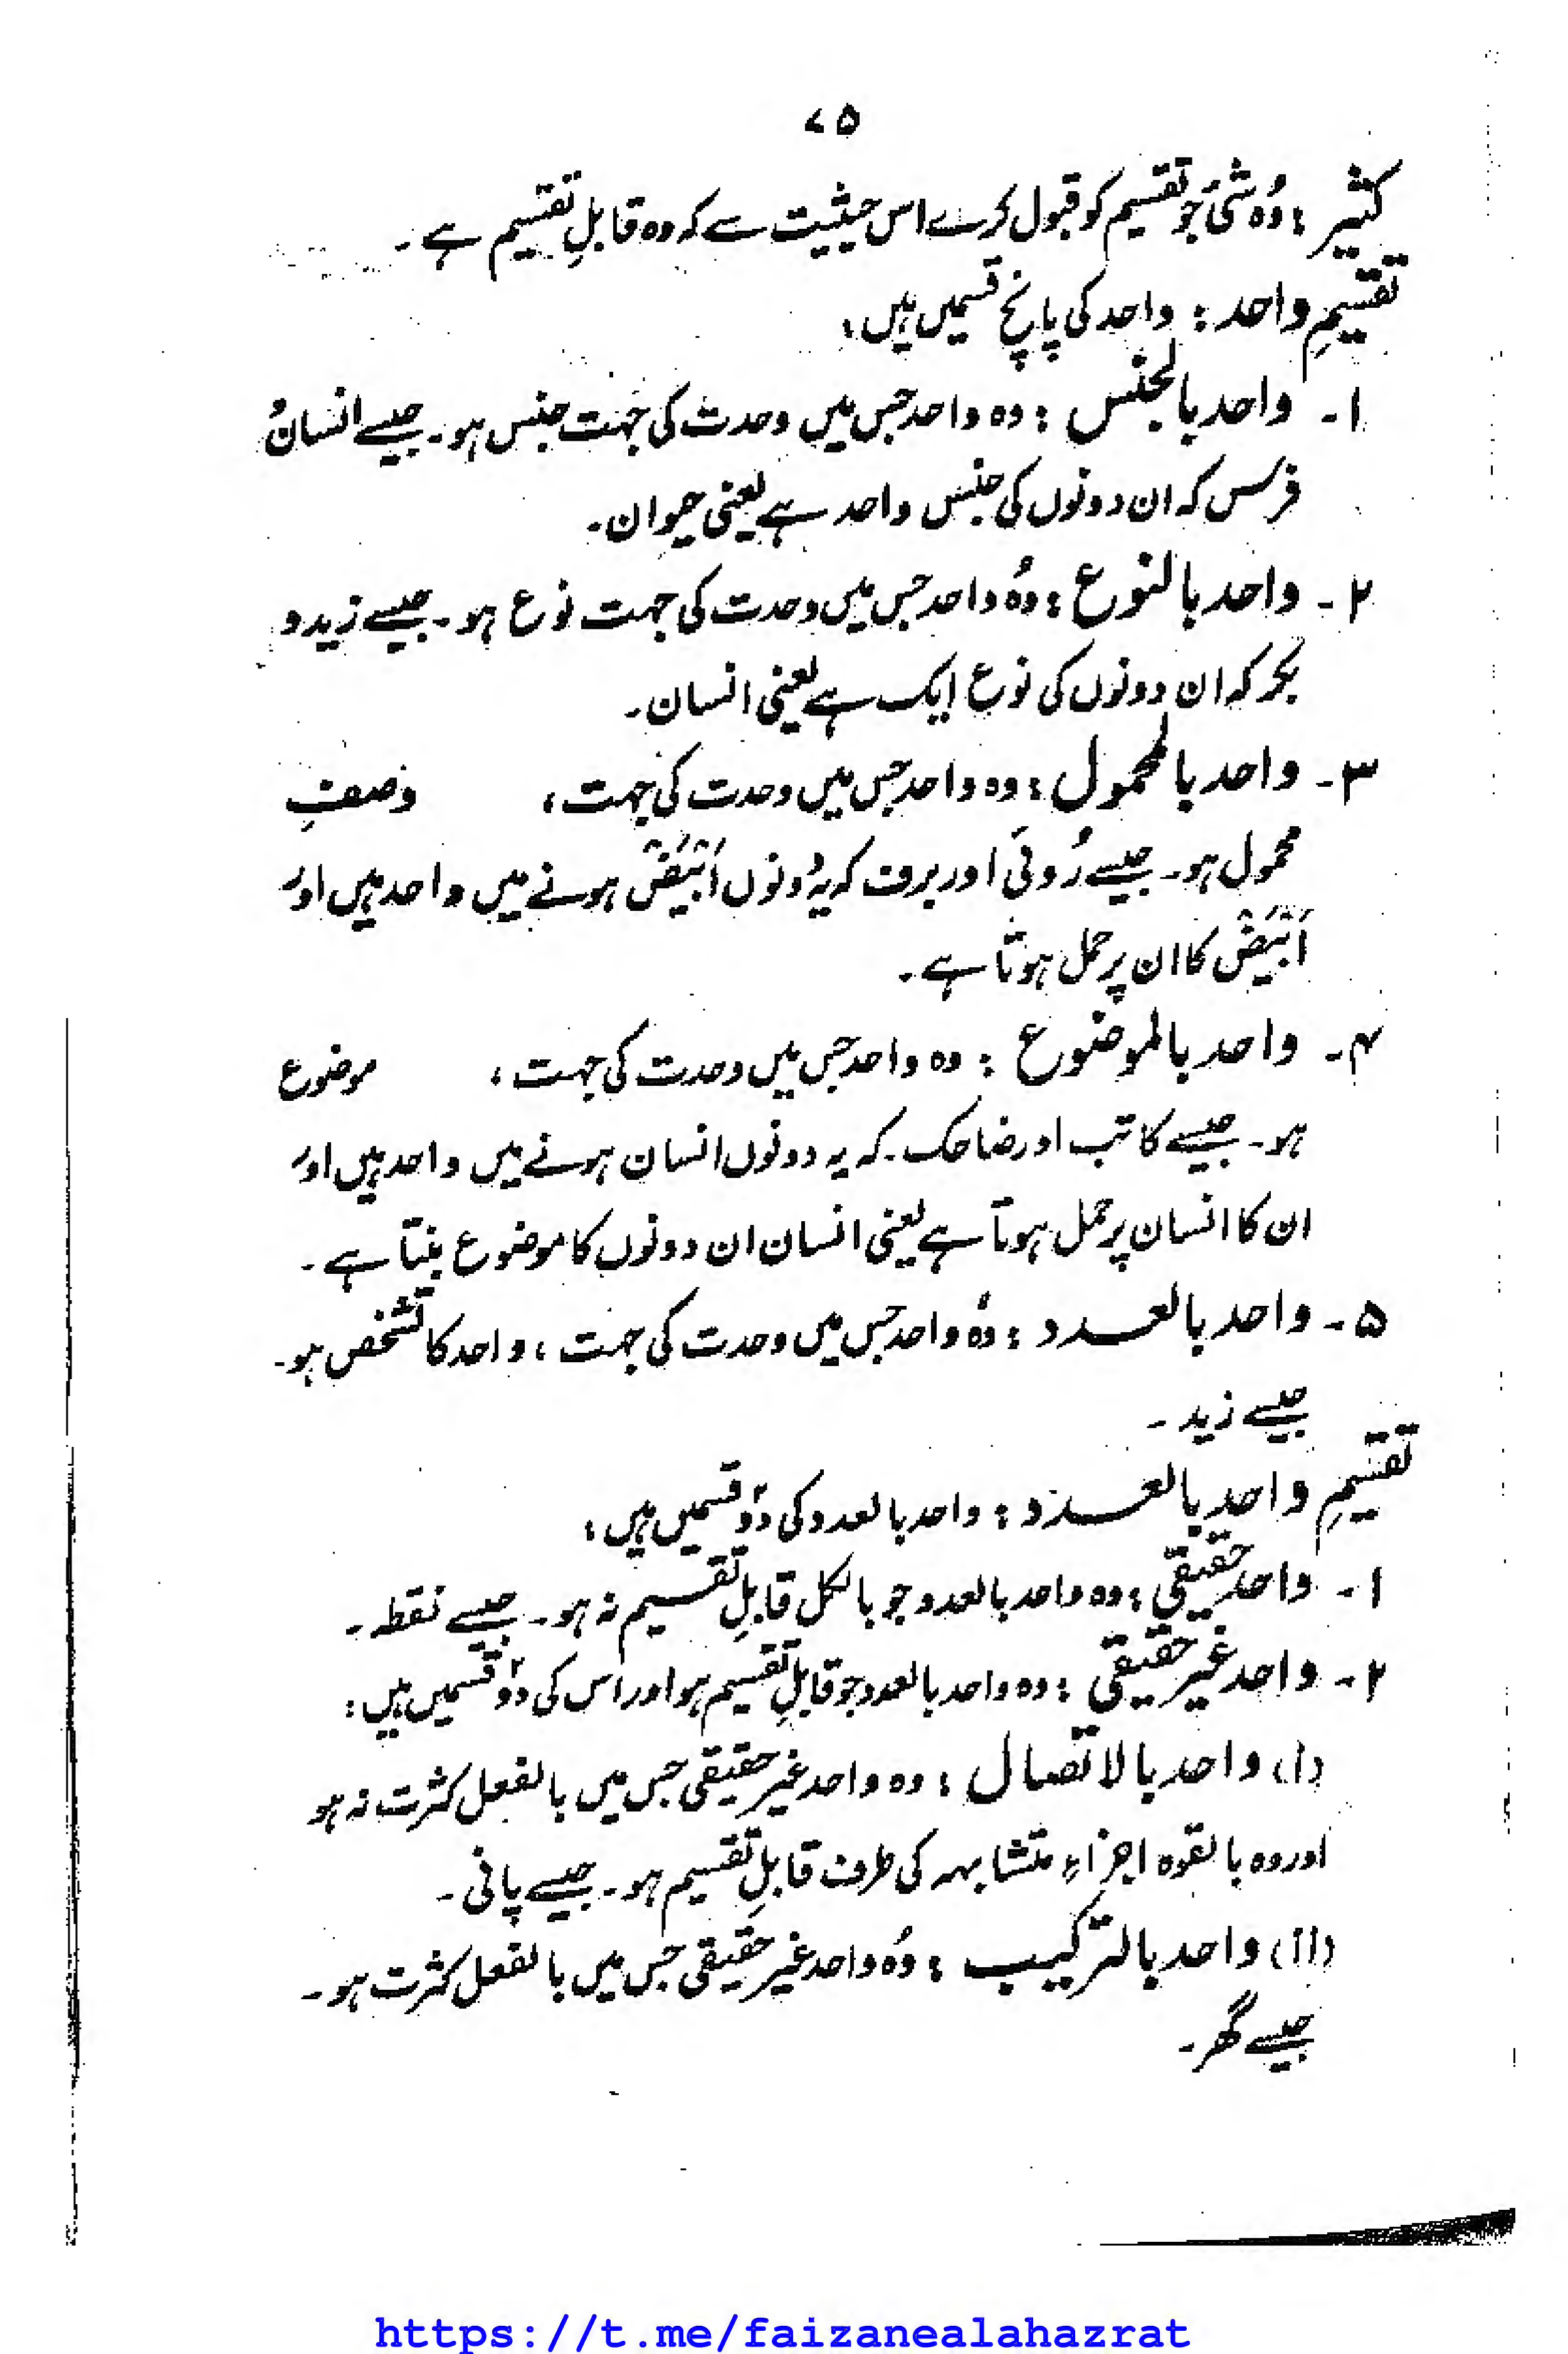 ۷۵
کثیر : وُہ شئ جو تقسیم کو قبول کرے اس حیثیت سے کہ وہ قابلِ تقسیم ہے ۔
تقسیمِ واحد : واحد کی پانچ قسمیں ہیں :
۱۔ واحد بالجنس : وہ واحد جس میں وحدت کی جہت جنس ہو۔ جیسے انسان و
فرس کہ ان دونوں کی جنس واحد ہے یعنی حیوان۔
۲۔ واحد بالنوع : وُہ واحد جس میں وحدت کی جہت نوع ہو۔ جیسے زید و
بکر کہ ان دونوں کی نوع ایک ہے یعنی انسان۔
۳۔ واحد بالمحمول : وہ واحد جس میں وحدت کی جہت ، وصفِ
محمول ہو۔ جیسے رُوئی اور برف کہ یہ دونوں اَبْیَضْ ہونے میں واحد ہیں اور
اَبْیَضْ کا ان پر حمل ہوتا ہے ۔
۴۔ واحد بالموضوع : وہ واحد جس میں وحدت کی جہت ، موضوع
ہو۔ جیسے کاتب اور ضاحک۔ کہ یہ دونوں انسان ہونے میں واحد ہیں اور
ان کا انسان پر حمل ہوتا ہے یعنی انسان ان دونوں کا موضوع بنتا ہے ۔
۵۔ واحد بالعدد : وُہ واحد جس میں وحدت کی جہت ، واحد کا تشخص ہو۔
جیسے زید ۔
تقسیمِ واحد بالعدد : واحد بالعدد کی دو قسمیں ہیں :
۱۔ واحد حقیقی : وہ واحد بالعدد جو بالکل قابلِ تقسیم نہ ہو۔ جیسے نقطہ ۔
۲۔ واحد غیر حقیقی : وہ واحد بالعدد جو قابلِ تقسیم ہو اور اس کی دو قسمیں ہیں :
(i) واحد بالاتصال : وہ واحد غیر حقیقی جس میں بالفعل کثرت نہ ہو
اور وہ بالقوہ اجزاءِ متشابہہ کی طرف قابلِ تقسیم ہو۔ جیسے پانی ۔
(ii) واحد بالترکیب : وُہ واحد غیر حقیقی جس میں بالفعل کثرت ہو ۔
جیسے گھر ۔
https://t.me/faizanealahazrat